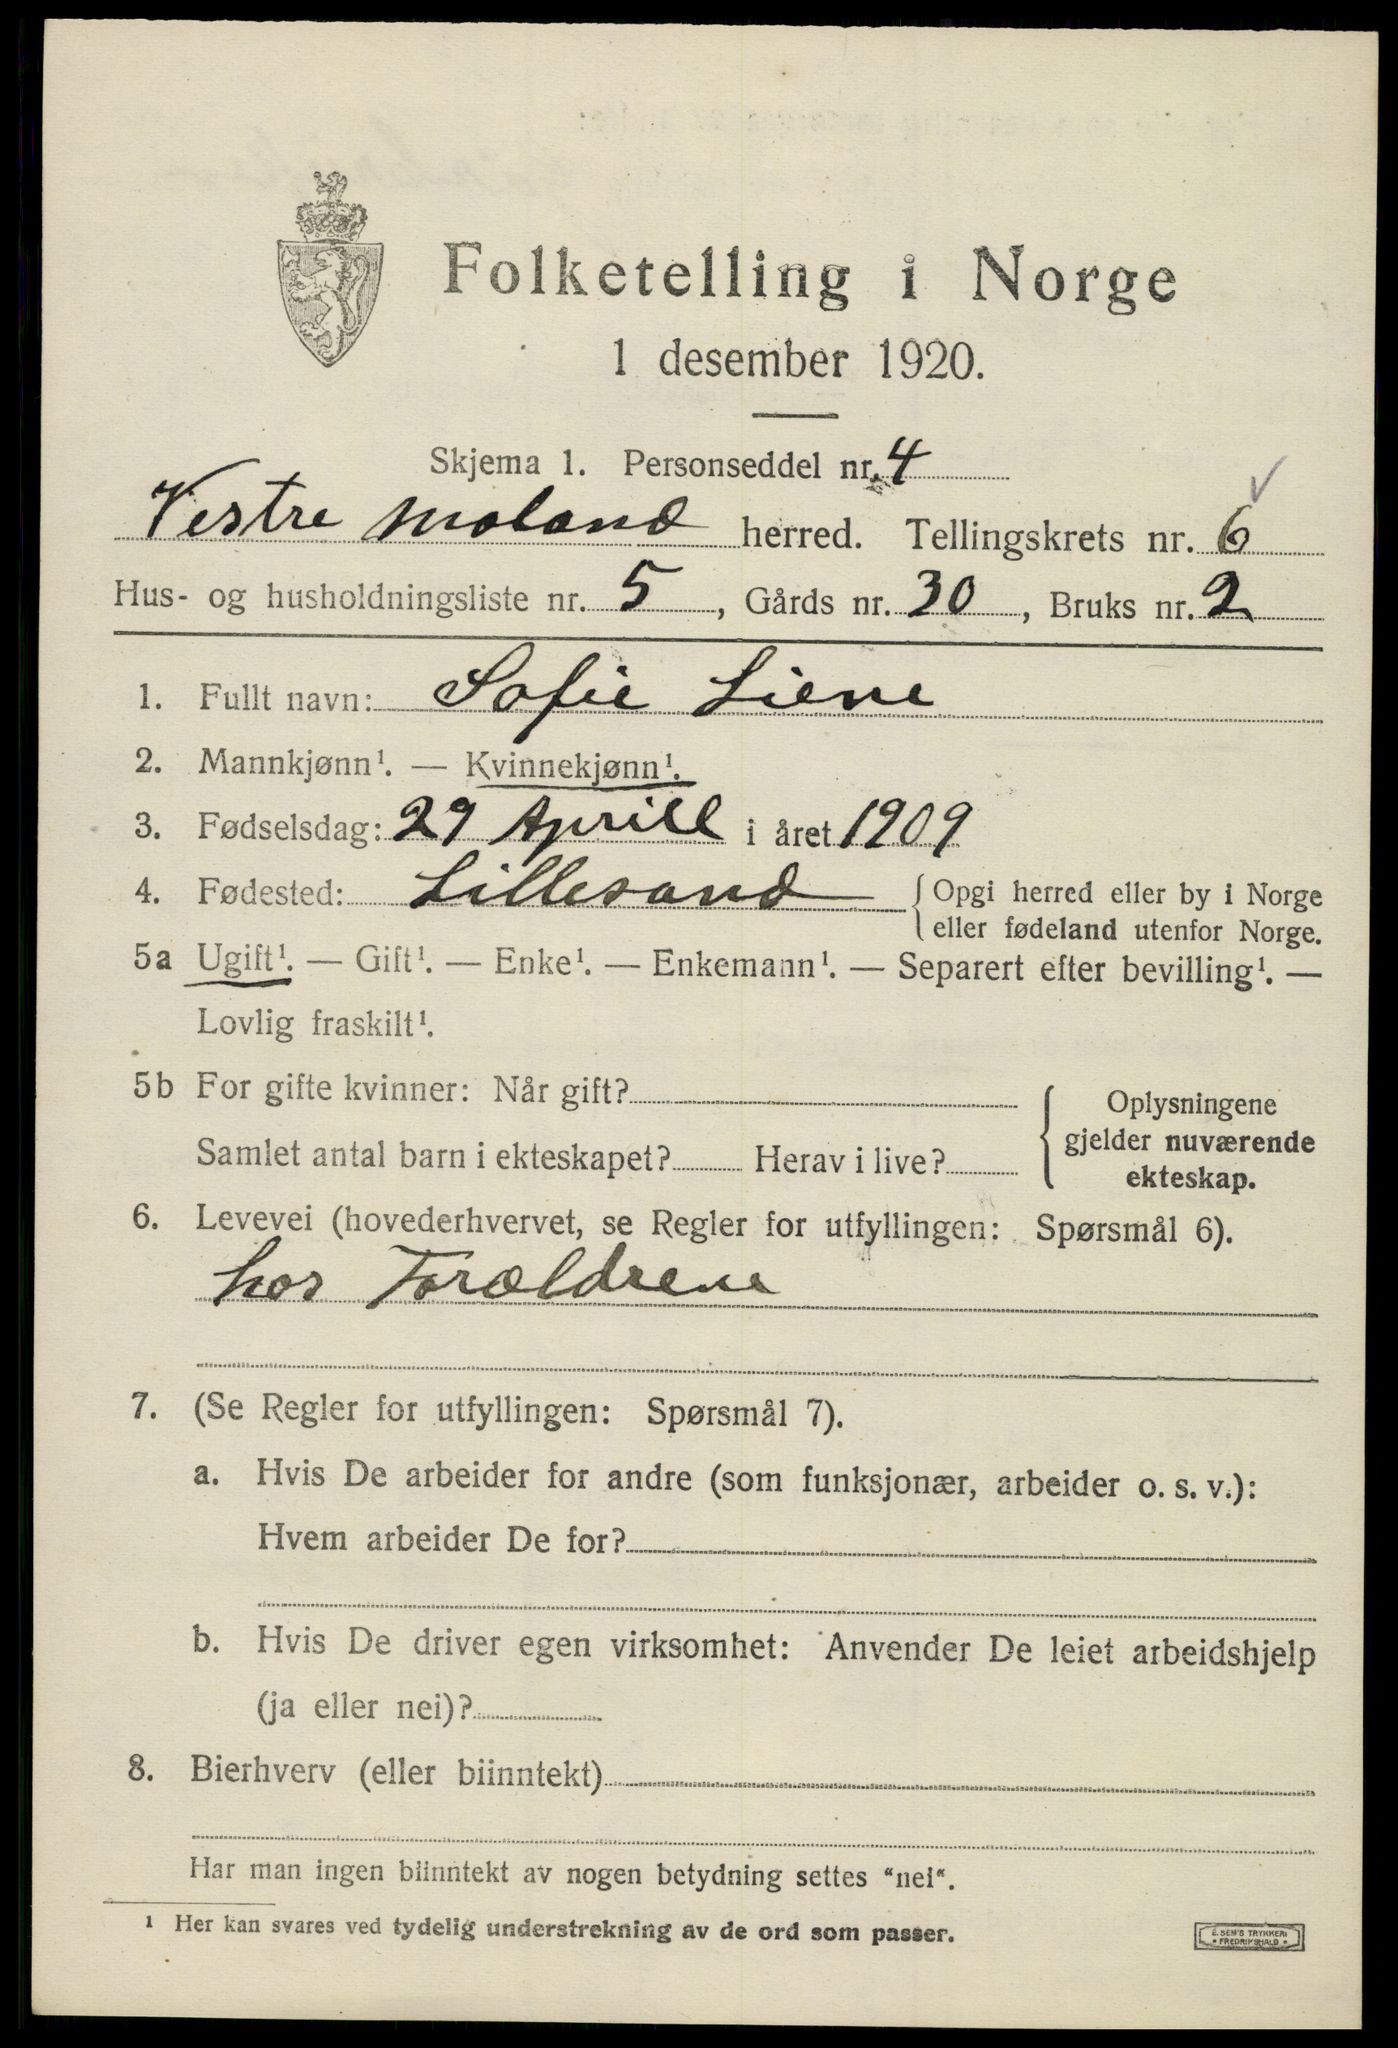 Folketelling i Norge
1 desember 1920.
Skjema 1. Personseddel nr. 4
Vestre Moland herred. Tellingskrets nr. 6
Hus- og husholdningsliste nr. 5, Gårds nr. 30, Bruks nr. 2
1. Fullt navn: Sofie Liene
2. Mannkjønn¹. — Kvinnekjønn¹.
3. Fødselsdag: 29 Aprill i året 1909
4. Fødested: Lillesand { Opgi herred eller by i Norge
eller fødeland utenfor Norge.
5a Ugift¹. — Gift¹. — Enke¹. — Enkemann¹. — Separert efter bevilling¹. —
Lovlig fraskilt¹.
5b For gifte kvinner: Når gift?
Samlet antal barn i ekteskapet? Herav i live?
Oplysningene
gjelder nuværende
ekteskap.
6. Levevei (hovederhvervet, se Regler for utfyllingen: Spørsmål 6).
hos Foræeldrene
7. (Se Regler for utfyllingen: Spørsmål 7).
a. Hvis De arbeider for andre (som funksjonær, arbeider o. s. v.):
Hvem arbeider De for?
b. Hvis De driver egen virksomhet: Anvender De leiet arbeidshjelp
(ja eller nei)?
8. Bierhverv (eller biinntekt)
Har man ingen biinntekt av nogen betydning settes "nei".
¹ Her kan svares ved tydelig understrekning av de ord som passer.
E. SEM'S TRYKKERI
• FREDRIKSHALD •